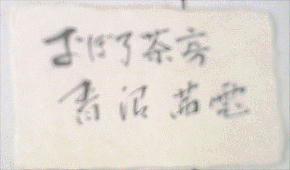 おぼろ茶房
青沼茜雲